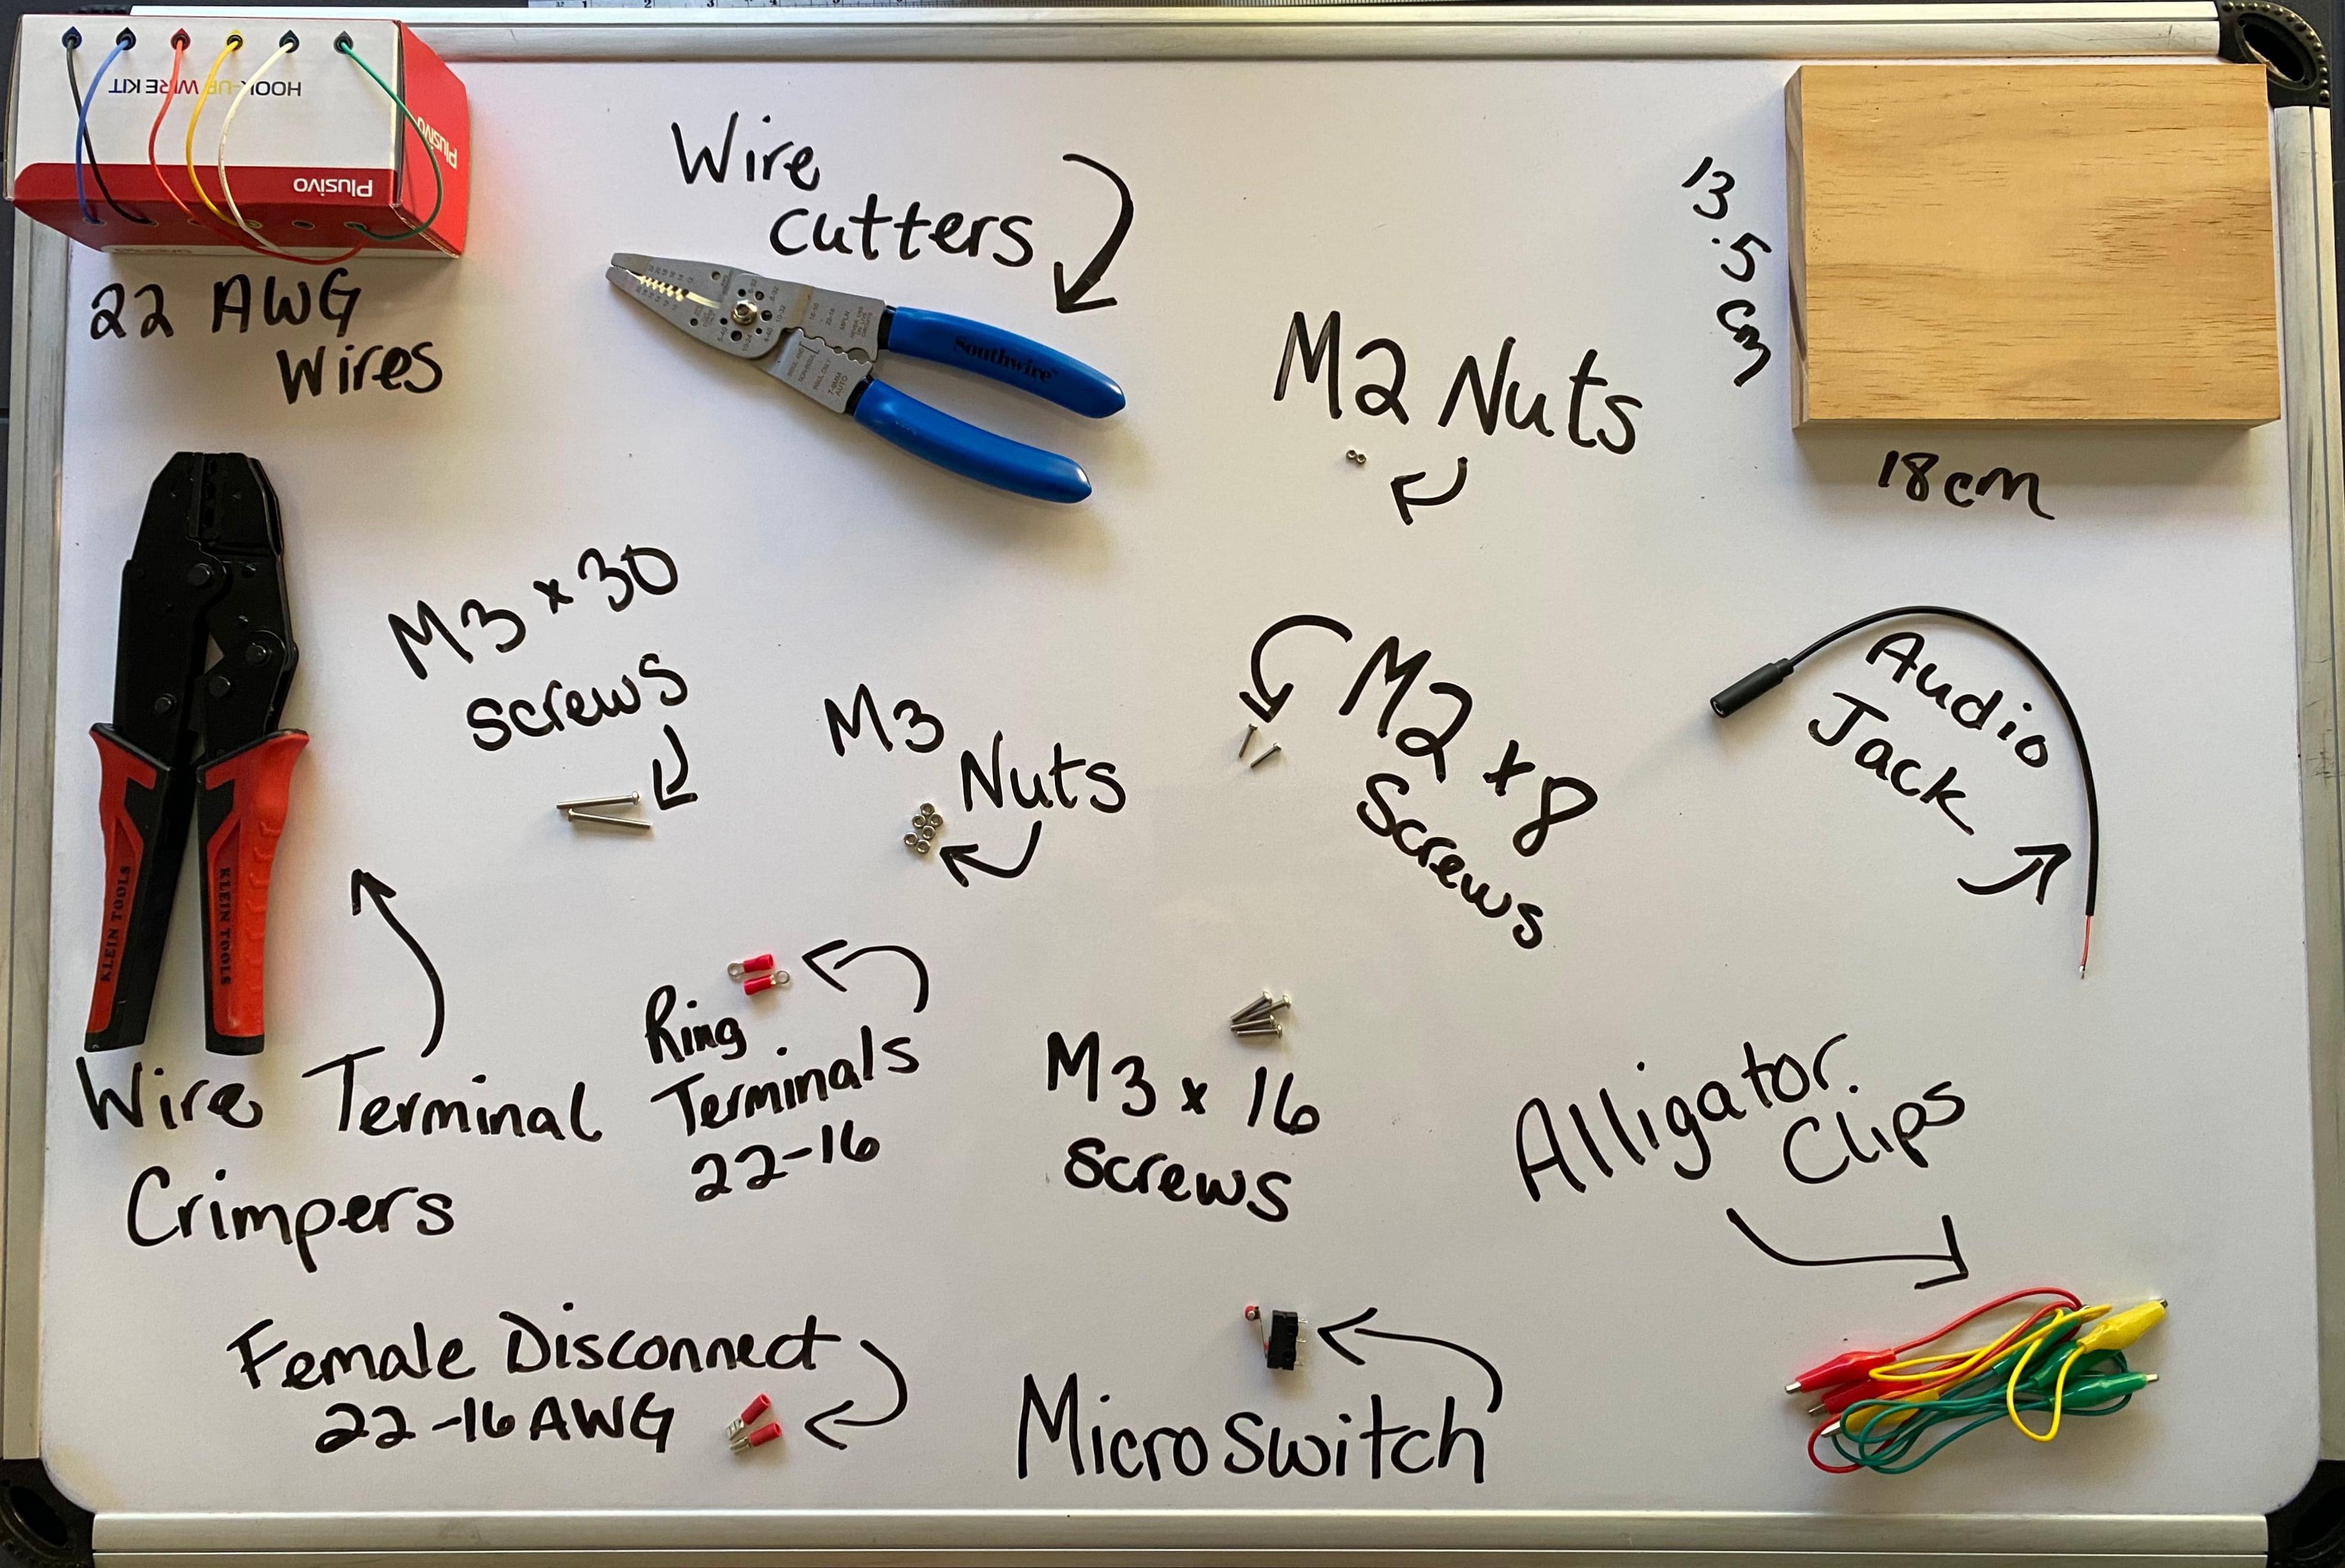 HOOK-UP WIRE KIT
Plusivo
Plusivo
22 AWG
Wires
Wire
cutters
Southwire
M2 Nuts
13.5 cm
18cm
M3 x 30
screws
M3
Nuts
M2 x 8
Screws
Audio
Jack
KLEIN TOOLS
KLEIN TOOLS
Wire Terminal
Crimpers
Ring
Terminals
22-16
M3 x 16
screws
Alligator
Clips
Female Disconnect
22-16 AWG
Micro switch